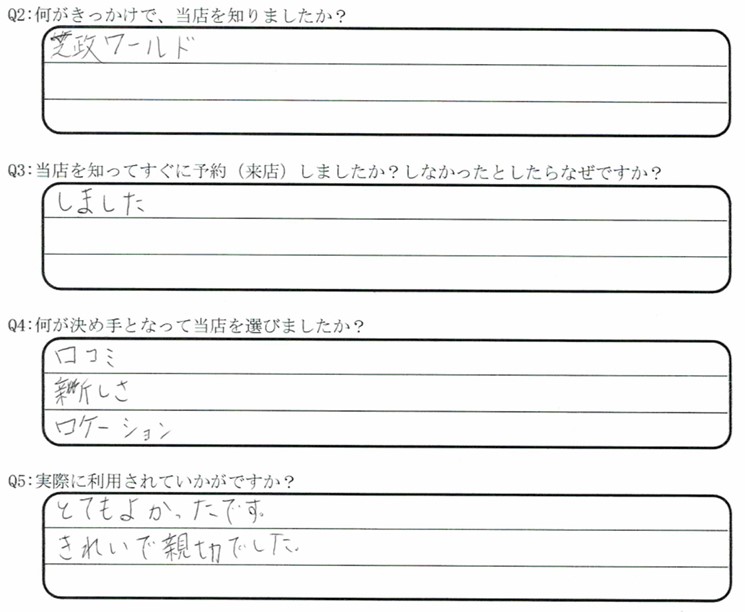 Q2:何がきっかけで、当店を知りましたか？
芝政ワールド
Q3:当店を知ってすぐに予約（来店）しましたか？しなかったとしたらなぜですか？
しました
Q4:何が決め手となって当店を選びましたか？
口コミ
新しさ
ロケーション
Q5:実際に利用されていかがですか？
とてもよかったです。
きれいで親切でした。